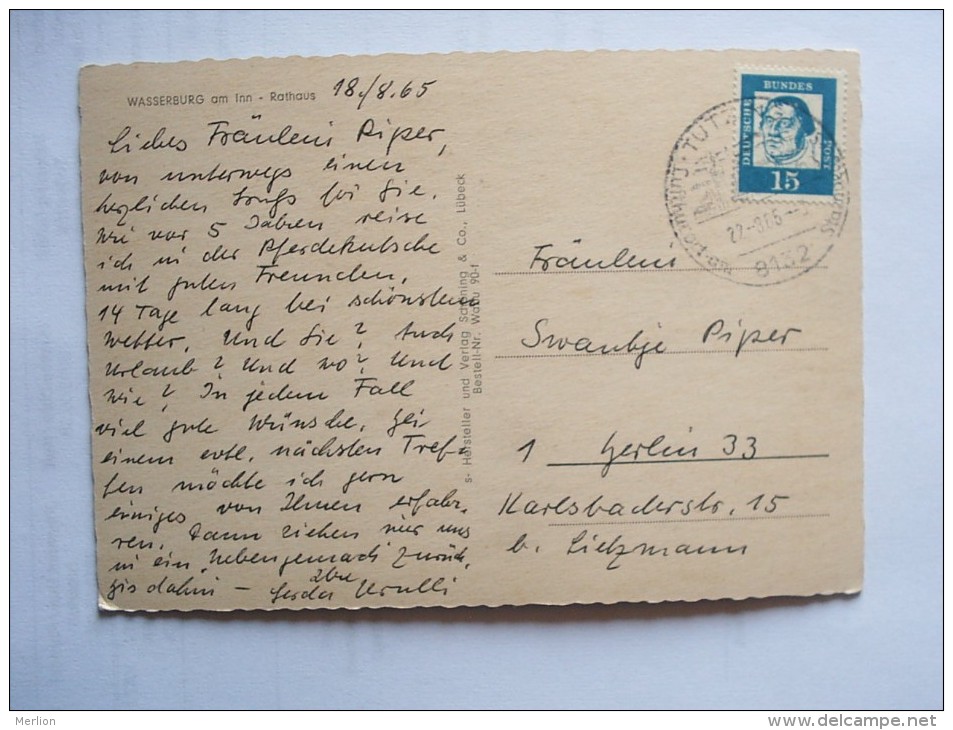 WASSERBURG am Inn - Rathaus
18./8.65
Liebes Fräulein Piper,
von unterwegs einen
herzlichen Gruß für Sie.
Wie vor 5 Jahren reise
ich in der Pferdekutsche
mit guten Freunden,
14 Tage lang bei schönstem
Wetter. Und Sie? Auch
Urlaub? Und wo? Und
wie? In jedem Fall
viel gute Wünsche. Bei
einem evtl. nächsten Tref-
fen möchte ich gern
einiges von Ihnen erfah-
ren. Dann ziehen wir uns
in ein Nebengemach zurück.
Bis dahin - Ihre
Gerda
s- Hersteller und Verlag Schöning & Co., Lübeck
Bestell-Nr. Wabu 90-f
DEUTSCHE BUNDES POST
15
TUTZ
8132
Fräulein
Swantje Piper
1 Berlin 33
Karlsbaderstr. 15
b. Lietzmann
Merlion
www.delcampe.net